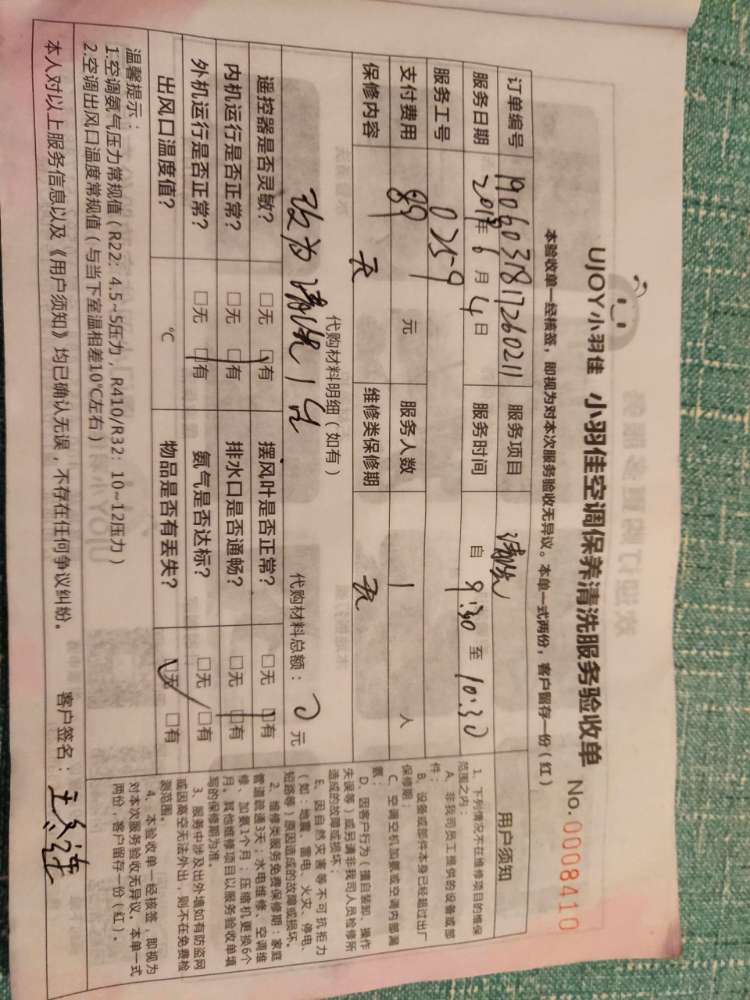 UJOY小羽佳 小羽佳空调保养清洗服务验收单 No. 0008410
本验收单一经核签，即视为对本次服务验收无异议。本单一式两份，客户留存一份（红）
订单编号 1906037817260211 服务项目 清洗
服务日期 2019年6月4日 服务时间 自9:30至10:30
服务工号 0259
支付费用 89元 服务人数 1人
保修内容 无 维修类保修期 无
代购材料明细（如有）
改为清洗1台 代购材料总额：0元
遥控器是否灵敏？ □无 □有 摆风叶是否正常？ □无 □有
内机运行是否正常？ □无 □有 排水口是否通畅？ □无 □有
外机运行是否正常？ □无 □有 氨气是否达标？ □无 □有
出风口温度值？ ℃ 物品是否有丢失？ □无 □有
温馨提示：
1.空调氨气压力常规值（R22：4.5~5压力，R410/R32：10~12压力）
2.空调出风口温度常规值（与当下室温相差10℃左右）
本人对以上服务信息以及《用户须知》均已确认无误，不存在任何争议纠纷。 客户签名：
用户须知
1、下列情况不在维修项目的维保
范围之内：
A、非我司员工提供的设备或部
件；
B、设备或部件本身已经超过出厂
保修期；
C、空调空机加氨或空调内部漏
氨；
D、因客户行为（擅自装卸、操作
失误等）或另请非我司人员检修所
造成的故障或损坏；
E、因自然灾害等不可抗拒力
（如：地震、雷电、火灾、停电、
短路等）原因造成的故障或损坏。
2、维修类服务免费保修期：家庭
管道疏通3天；水电维修、空调维
修、加氨1个月；压缩机更换6个
月。其他维修项目以服务验收单填
写的保修期为准。
3、服务中涉及出外墙如有防盗网
或因高空无法外出，则不在免费检
测范围。
4、本验收单一经核签，即视为
对本次服务验收无异议。本单一式
两份，客户留存一份（红）。